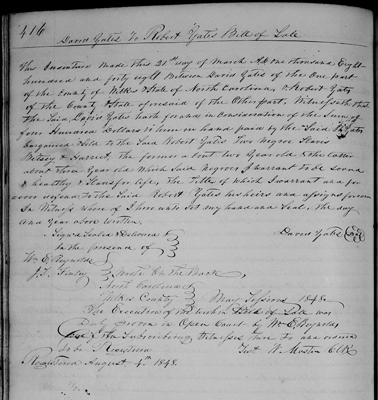 416
David Yates To Robert Yates Bill of Sale
This Indenture made this 21st day of March AD one thousand Eight
hundred and forty eight Between David Yates of the One part
of the County of Wilks & State of North Carolina, & Robert Yates
of the County & State aforesaid of the Other part, Witnesseth that
the Said David Yates hath for and in Consideration of the Sum of
four Hundred Dollars to him in hand paid by the Said R Yates
bargained & Sold to the Said Robert Yates Two Negroe Slaves
Betsey & Harriet, the former about two Year old & the latter
about three Year old Which Said Negroes I warrant to be Sound
& healthy & Slaves for life, the title of which I warrant and for
ever defend to the Said Robert Yates his heirs and assigns forever
In Witness where of I have unto Set my hand and Seal, the day
and Year above written
Signed Sealed & Delivered
David Yates Seal
In the presence of
Wm E Reynolds
J.T. Finley
North Carolina
Wilkes County
May Sessions 1848
The Execution of the within Bill of Sale was
Duly proven in Open Court by Wm E Reynolds
One of the Subscribing Witnesses there to and ordered
to be Registered
Test W. Mastin Clk
Registered August 4th 1848.